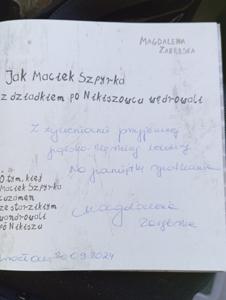 MAGDALENA
ZARĘBSKA
Jak Maciek Szpyrka
z dziadkiem po Nikiszowcu wędrowali
Z życzeniami przyjemnej
Na pamiątkę spotkania
Magdalena
Zarębska
O tym, kiej
Maciek Szpyrka
cuzamen
ze starzikiym
wandrowali
po Nikiszu
09.2024